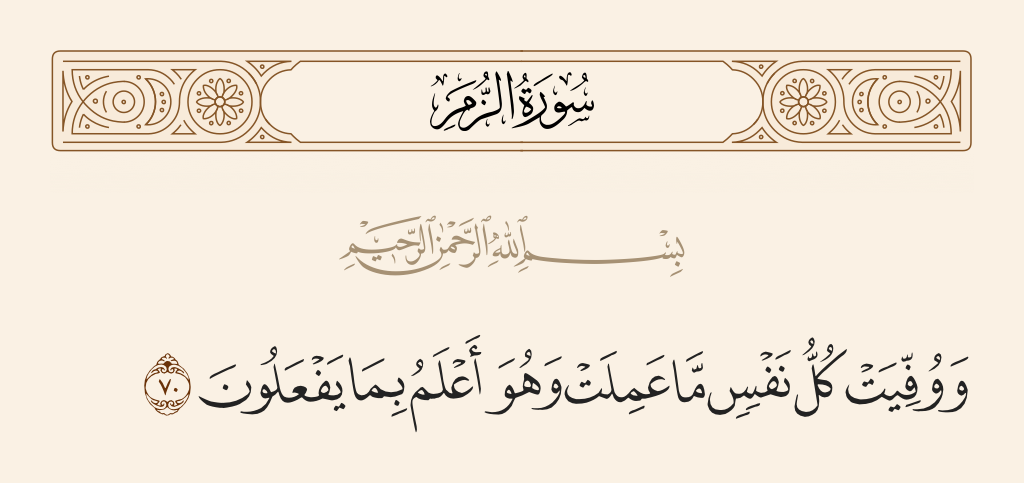 سُورَةُ الزُّمَرِ
بِسْمِ ٱللَّهِ ٱلرَّحْمَٰنِ ٱلرَّحِيمِ
وَوُفِّيَتْ كُلُّ نَفْسٍ مَّا عَمِلَتْ وَهُوَ أَعْلَمُ بِمَا يَفْعَلُونَ ٧٠